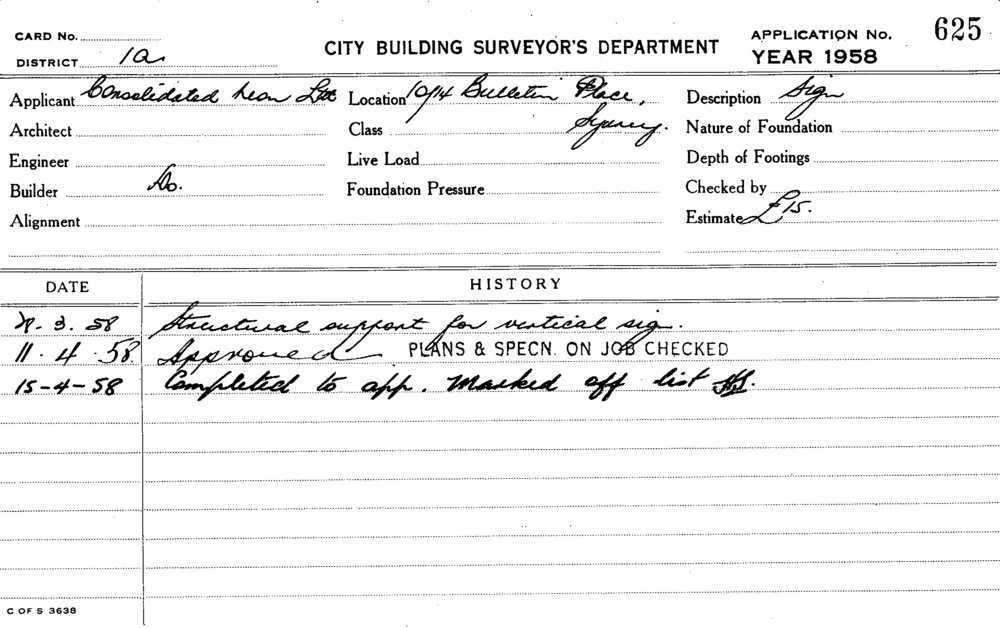 CARD No.
CITY BUILDING SURVEYOR'S DEPARTMENT
APPLICATION No. 625
DISTRICT 1a
YEAR 1958
Applicant Consolidated Neon Ltd Location 10/14 Bulletin Place, Sydney. Description Sign
Architect Class Nature of Foundation
Engineer Live Load Depth of Footings
Builder Do. Foundation Pressure Checked by
Alignment Estimate £15.
DATE HISTORY
3. 58 Structural support for vertical sign.
11. 4. 58. Approved PLANS & SPECN. ON JOB CHECKED
15-4-58 Completed to app. Marked off list
C OF S 3638